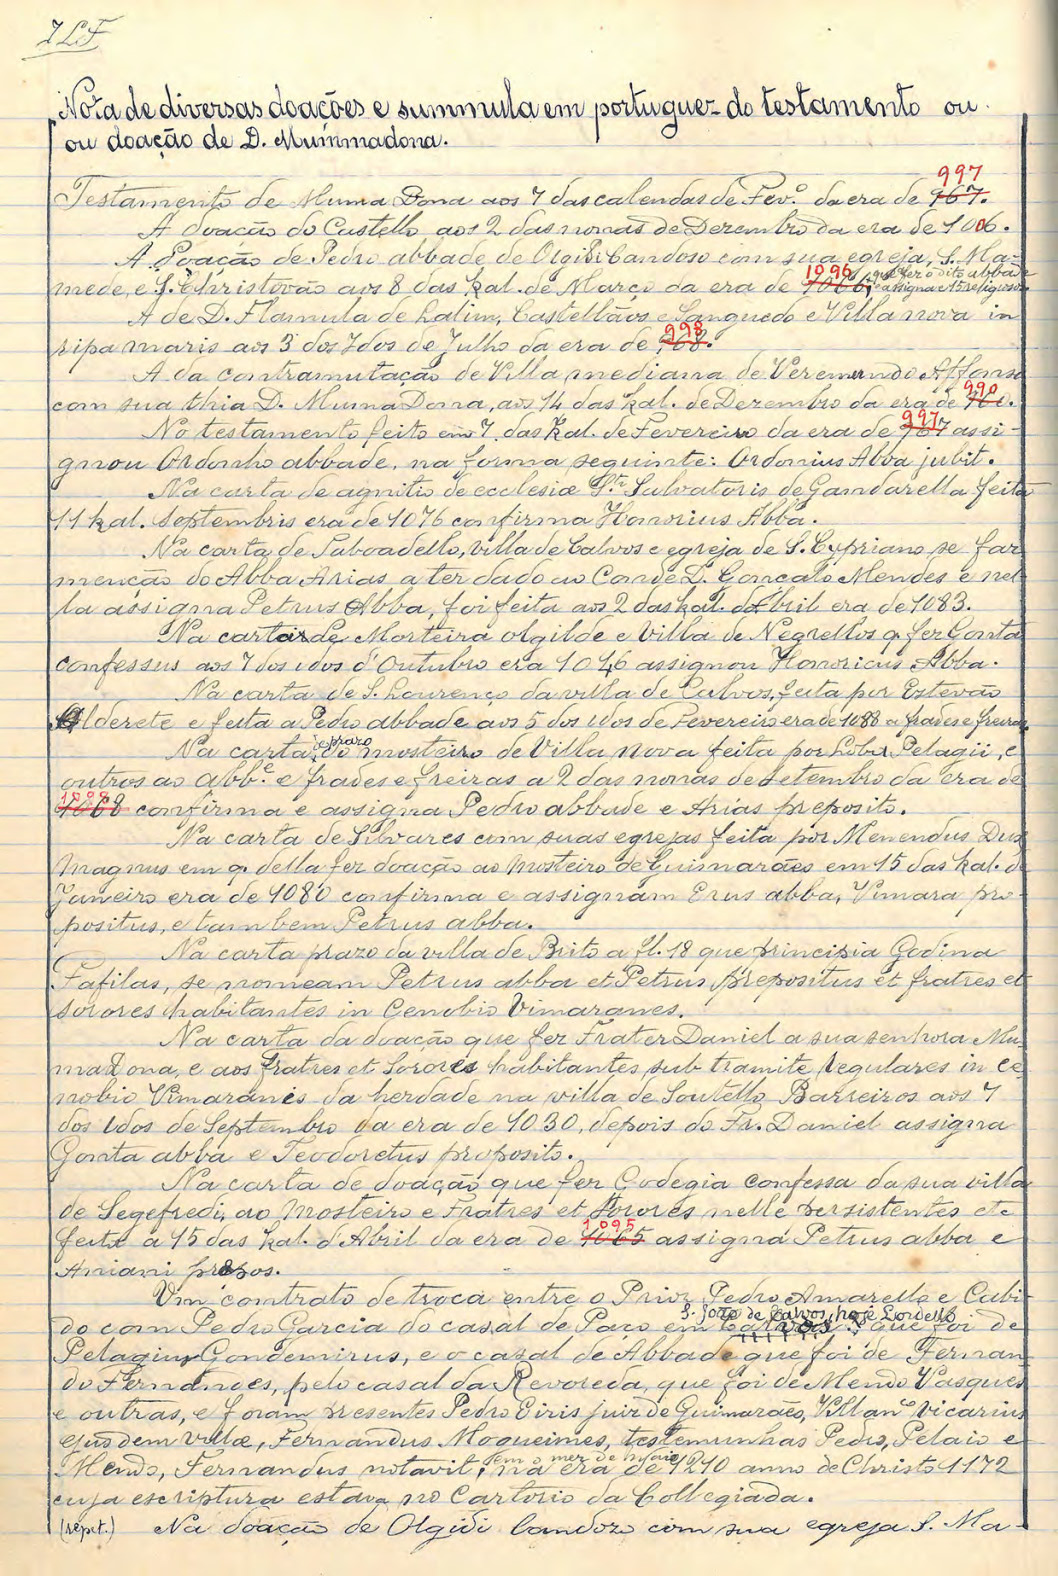 Nota de diversas doações e summula em portuguez do testamento ou
ou doação de D. Mummadona.
997
Testamento de Muma Dona aos 7 das calendas de Fev.º da era de 967.
A doação do Castello aos 2 das nonas de Dezembro da era de 1006.
A Doação de Pedro abbade de Olgidi Candoso com sua egreja, S. Ma-
mede, e S. Christovão aos 8 das Kal. de Março da era de 1096 que fez o dito abbade e assigna e 15 religiosos.
A de D. Flamula de Lalim, Castellãos e Sanguedo e Villa nova in
ripa maris aos 3 dos Idos de Julho da era de 998.
A da contramutação de Villa mediana de Veremundo Affonso
com sua thia D. Muma Dona, aos 14 das Kal. de Dezembro da era de 990.
No testamento feito em 7 das Kal. de Fevereiro da era de 997 assi-
gnou Ordonho abbade, na forma seguinte: Ordonius Abba jubit.
Na carta de agnitio de ecclesiæ Sti Salvatoris de Gandarella feita
11 kal. Septembris era de 1076 confirma Honorius Abba.
Na carta de Saboadello, villa de Calvos e egreja de S. Cypriano se faz
menção do Abba Arias a ter dado ao Conde D. Gonçalo Mendes e nel-
la assigna Petrus Abba, foi feita aos 2 das kal. d'Abril era de 1083.
Na carta de Morteira olgilde e Villa de Negrellos q. fez Gonta
confessus aos 7 dos idos d'Outubro era 1046 assignou Honoricus Abba.
Na carta de S. Lourenço da villa de Calvos, feita por Estevão
Alderete e feita a Pedro abbade aos 5 dos idos de Fevereiro era de 1088 a frades e freiras
Na carta e prazo do mosteiro de Villa nova feita por Lober Pelagii, e
outros ao abb.e e frades e freiras a 2 das nonas de Setembro da era de
1098 1068 confirma e assigna Pedro abbade e Arias preposito.
Na carta de Silvares com suas egrejas feita por Menendus Dux
Magnus em q. della fez doação ao Mosteiro de Guimarães em 15 das kal. de
Janeiro era de 1080 confirma e assignam Erus abba, Vimara pro-
positus, e tambem Petrus abba.
Na carta prazo da villa de Brito a fl. 18 que principia Godina
Fafilas, se nomeam Petrus abba et Petrus prepositus et fratres et
sorores habitantes in Cenobio Vimaranes.
Na carta da doação que fez Frater Daniel a sua senhora Mu-
madona, e aos fratres et Sorores habitantes sub tramite regulares in ce
nobio Vimaranis da herdade na villa de Soutello Barreiros aos 7
dos Idos de Septembro da era de 1030, depois do Fr. Daniel assigna
Gonta abba e Teodoretus proposito.
Na carta de doação que fez Godegia confessa da sua villa
de Segefredi, ao Mosteiro e Fratres et Sorores nelle persistentes etc
feita a 15 das kal. d'Abril da era de 1095 1065 assigna Petrus abba e
Aniani prepos.
Um contrato de troca entre o Prior Pedro Amarello e Cabi-
S. João de Calvos, hoje Lordello
do com Pedro Garcia do casal de Paço em Calvos que foi de
Pelagius Gondemirus, e o casal de Abbade que foi de Fernan
do Fernandes, pelo casal da Revoreda, que foi de Mendo Vasques
e outras, e foram presentes Pedro Eiris juiz de Guimarães, Villan.º Vicarius
ejusdem villæ, Fernandus Moqueimes, testemunhas Pedro, Pelaio e
Mendo, Fernandus notavit, em o mez de Maio na era de 1210 anno de Christo 1172
cuja escriptura estava no Cartorio da Collegiada.
(repet.) Na doação de Olgidi Candozo com sua egreja S. Ma-